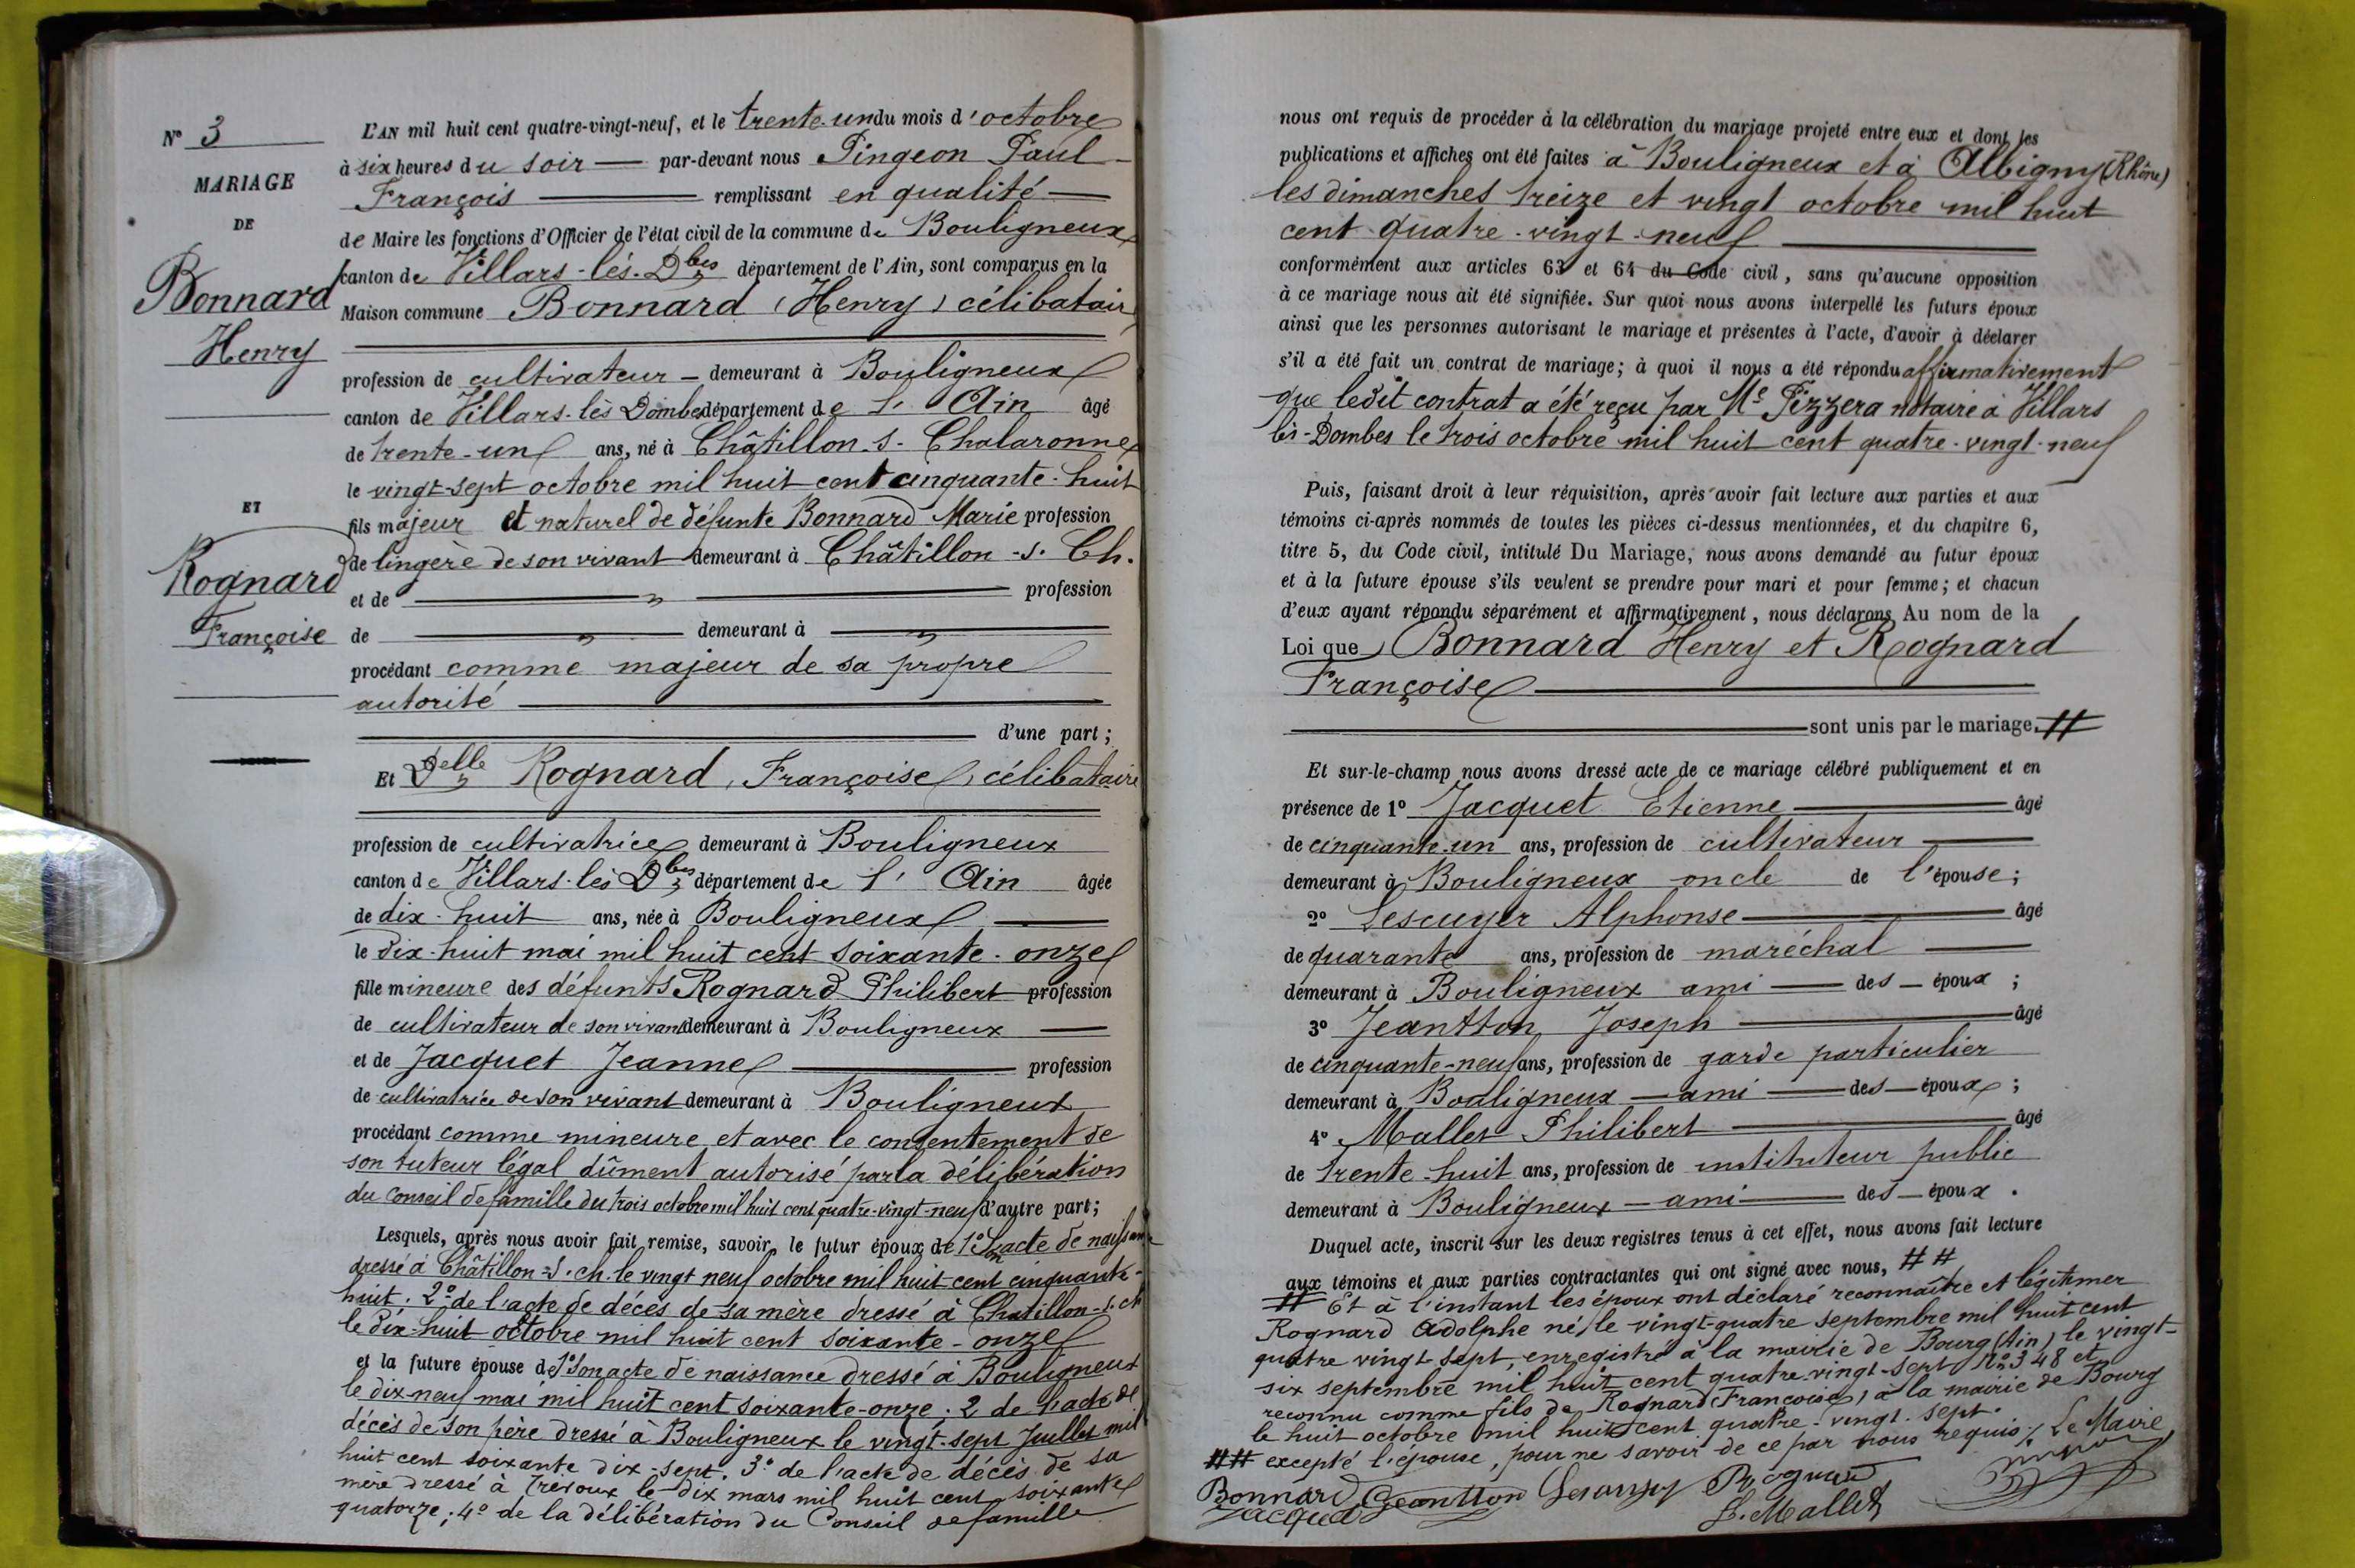 N° 3
MARIAGE
DE
Bonnard
Henry
ET
Rognard
Françoise
L'AN mil huit cent quatre-vingt-neuf, et le trente-un du mois d'octobre
à six heures du soir — par-devant nous Pingeon Paul
François — remplissant en qualité —
de Maire les fonctions d'Officier de l'état civil de la commune de Bouligneux
canton de Villars-lès-Dbes département de l'Ain, sont comparus en la
Maison commune Bonnard (Henry) célibataire
profession de cultivateur — demeurant à Bouligneux
canton de Villars-lès Dombes département de l'Ain âgé
de trente-un ans, né à Châtillon-s-Chalaronne
le vingt-sept octobre mil huit cent cinquante-huit
fils majeur et naturel de défunte Bonnard Marie profession
de lingère de son vivant demeurant à Châtillon-s. Ch.
et de — profession
de — demeurant à —
procédant comme majeur de sa propre
autorité —
d'une part ;
Et Delle Rognard, Françoise, célibataire
profession de cultivatrice demeurant à Bouligneux
canton de Villars-lès Dbes département de l'Ain âgée
de dix-huit ans, née à Bouligneux —
le dix-huit mai mil huit cent soixante-onze
fille mineure des défunts Rognard Philibert profession
de cultivateur de son vivant demeurant à Bouligneux —
et de Jacquet Jeanne — profession
de cultivatrice de son vivant demeurant à Bouligneux
procédant comme mineure et avec le consentement de
son tuteur légal dûment autorisé par la délibération
du Conseil de famille du trois octobre mil huit cent quatre-vingt-neuf d'autre part ;
Lesquels, après nous avoir fait remise, savoir, le futur époux de 1° Son acte de naissance
dressé à Châtillon-s. ch. le vingt neuf octobre mil huit cent cinquante-
huit. 2° de l'acte de décès de sa mère dressé à Chatillon-s. ch
le dix-huit octobre mil huit cent soixante-onze
et la future épouse de 1° Son acte de naissance dressé à Bouligneux
le dix-neuf mai mil huit cent soixante-onze ; 2 de l'acte de
décès de son père dressé à Bouligneux le vingt-sept Juillet mil
huit cent soixante dix-sept. 3° de l'acte de décès de sa
mère dressé à Trévoux le dix mars mil huit cent soixante
quatorze ; 4° de la délibération du Conseil de famille
nous ont requis de procéder à la célébration du mariage projeté entre eux et dont les
publications et affiches ont été faites à Bouligneux et à Albigny (Rhône)
les dimanches treize et vingt octobre mil huit
cent quatre-vingt-neuf —
conformément aux articles 63 et 64 du Code civil, sans qu'aucune opposition
à ce mariage nous ait été signifiée. Sur quoi nous avons interpellé les futurs époux
ainsi que les personnes autorisant le mariage et présentes à l'acte, d'avoir à déclarer
s'il a été fait un contrat de mariage ; à quoi il nous a été répondu affirmativement
que ledit contrat a été reçu par Me Pizzera notaire à Villars
lès-Dombes le trois octobre mil huit cent quatre-vingt-neuf
Puis, faisant droit à leur réquisition, après avoir fait lecture aux parties et aux
témoins ci-après nommés de toutes les pièces ci-dessus mentionnées, et du chapitre 6,
titre 5, du Code civil, intitulé Du Mariage, nous avons demandé au futur époux
et à la future épouse s'ils veulent se prendre pour mari et pour femme ; et chacun
d'eux ayant répondu séparément et affirmativement, nous déclarons Au nom de la
Loi que Bonnard Henry et Rognard
Françoise —
sont unis par le mariage. #
Et sur-le-champ nous avons dressé acte de ce mariage célébré publiquement et en
présence de 1° Jacquet Etienne — âgé
de cinquante-un ans, profession de cultivateur —
demeurant à Bouligneux oncle de l'épouse ;
2° Lescuyer Alphonse — âgé
de quarante ans, profession de maréchal —
demeurant à Bouligneux ami — des — époux ;
3° Jeantton Joseph — âgé
de cinquante-neuf ans, profession de garde particulier
demeurant à Bouligneux — ami — des — époux ;
4° Mallet Philibert — âgé
de trente-huit ans, profession de instituteur public
demeurant à Bouligneux — ami — des — époux.
Duquel acte, inscrit sur les deux registres tenus à cet effet, nous avons fait lecture
aux témoins et aux parties contractantes qui ont signé avec nous, # #
# Et à l'instant les époux ont déclaré reconnaître et légitimer
Rognard Adolphe né le vingt-quatre septembre mil huit cent
quatre vingt-sept, enregistré à la mairie de Bourg (Ain) le vingt-
six septembre mil huit cent quatre-vingt-sept N° 348 et
reconnu comme fils de Rognard (Françoise) à la mairie de Bourg
le huit octobre mil huit cent quatre-vingt-sept.
# # excepté l'épouse, pour ne savoir de ce par nous requis ./. Le Maire
Bonnard Geantton Lescuyer Rognard
Jacquet P. Mallet